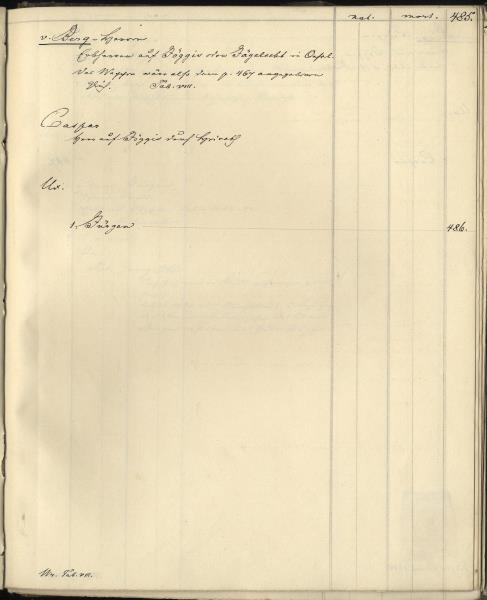 nat. mort. 485.
v. Berg-Herrn
Erbherren auf Jöggis oder Jägelecht in Oesel.
Das Wappen wäre also dem p. 467 angegebenen
Tab. VIII.
Caspar
Herr auf Jöggis durch Heirath
Ux.
1. Jürgen 486.
Tab. VII.